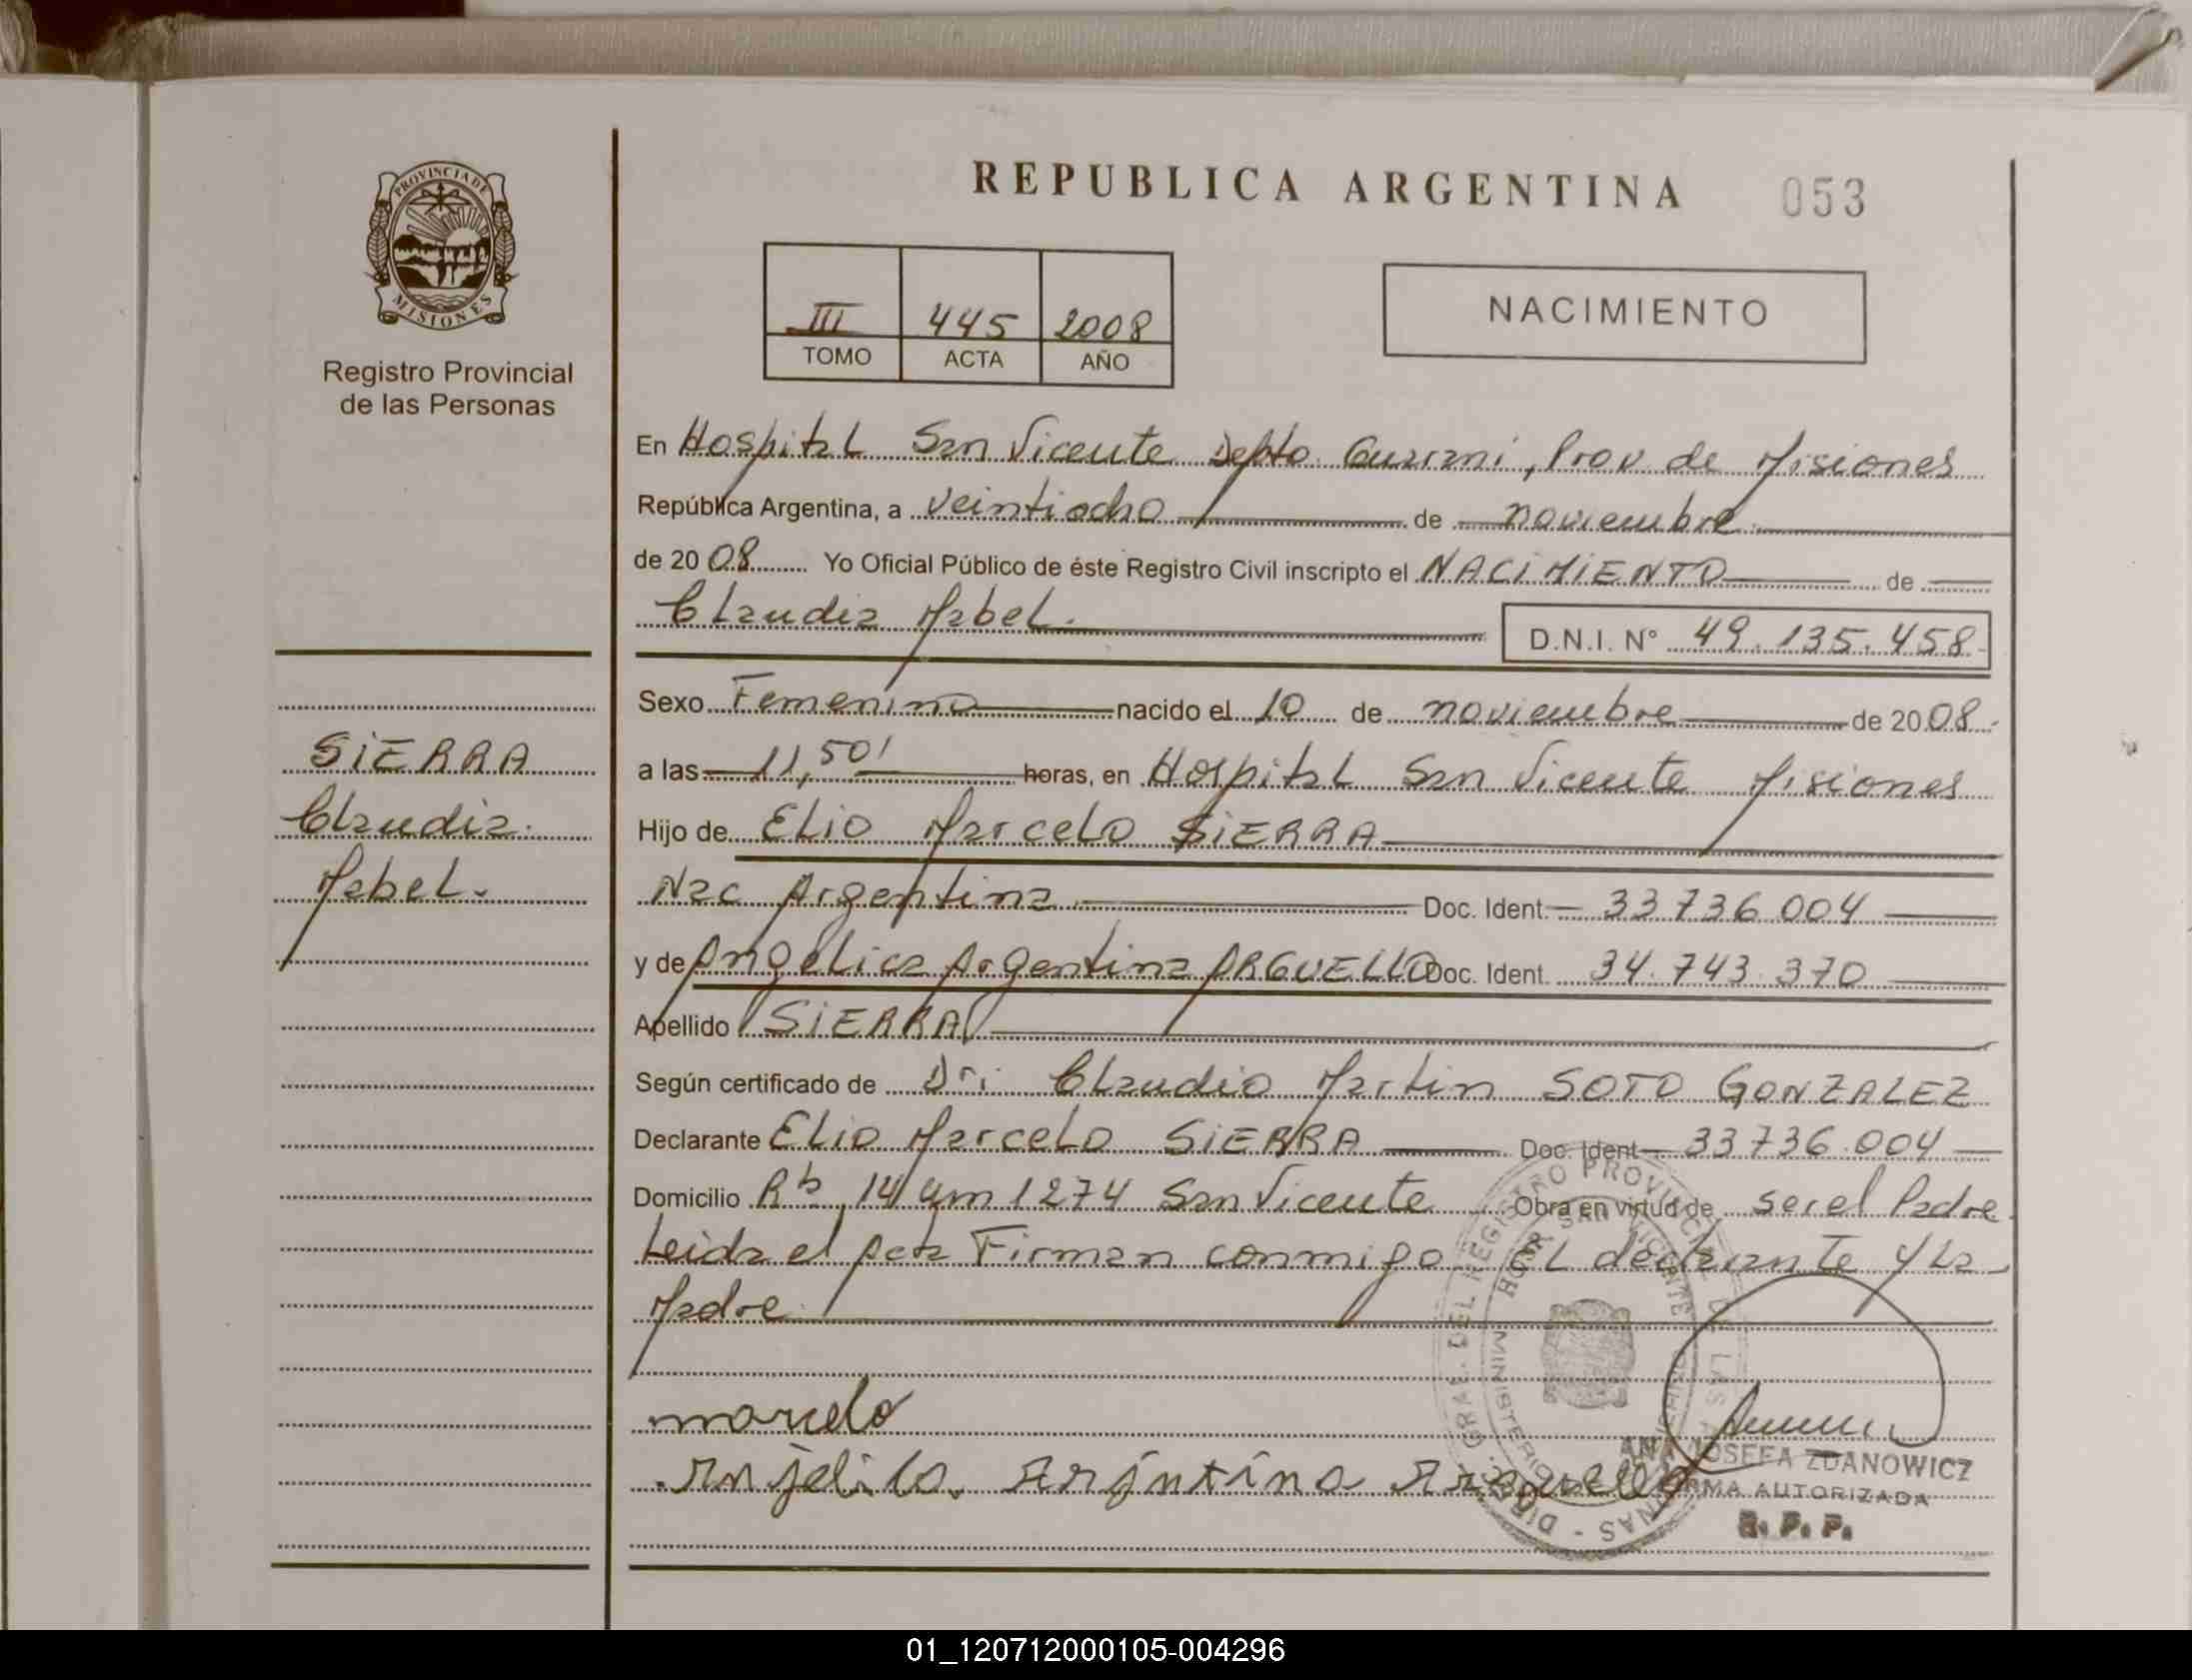 REPUBLICA ARGENTINA 053
PROVINCIA DE
MISIONES
Registro Provincial
de las Personas
III 445 2008
TOMO ACTA AÑO
NACIMIENTO
En Hospital San Vicente Depto Guarani, Prov de Misiones
República Argentina, a veintiocho de noviembre
de 2008 Yo Oficial Público de éste Registro Civil inscripto el NACIMIENTO de
Claudia Mabel. D.N.I. Nº 49.135.458
Sexo Femenino nacido el 10 de noviembre de 2008
a las 11,50' horas, en Hospital San Vicente Misiones
Hijo de Elio Marcelo SIERRA
Nac Argentina Doc. Ident. 33736004
y de Angelica Argentina ARGUELLO Doc. Ident. 34.743.370
Apellido SIERRA
Según certificado de Dr: Claudio Martin SOTO GONZALEZ
Declarante Elio Marcelo SIERRA Doc. Ident. 33736.004
Domicilio Bº 144m 1274 San Vicente Obra en virtud de ser el Padre
Leida el acta Firman conmigo El declarante y La
Madre
SIERRA
Claudia
Mabel.
marcelo
Anjelica Arjntina Arguello
ANA JOSEFA ZDANOWICZ
FIRMA AUTORIZADA
R. P. P.
01_120712000105-004296